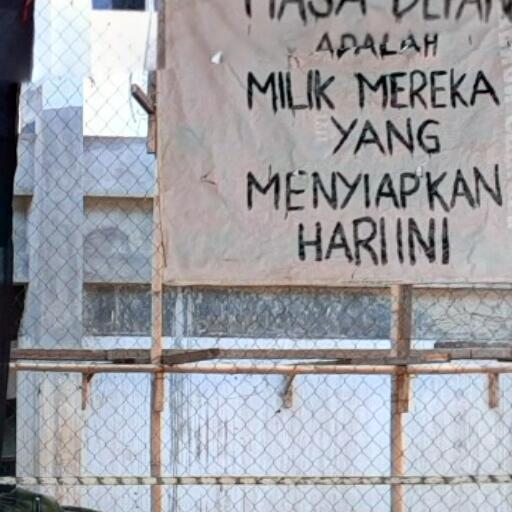 MASA DEPAN
ADALAH
MILIK MEREKA
YANG
MENYIAPKAN
HARI INI